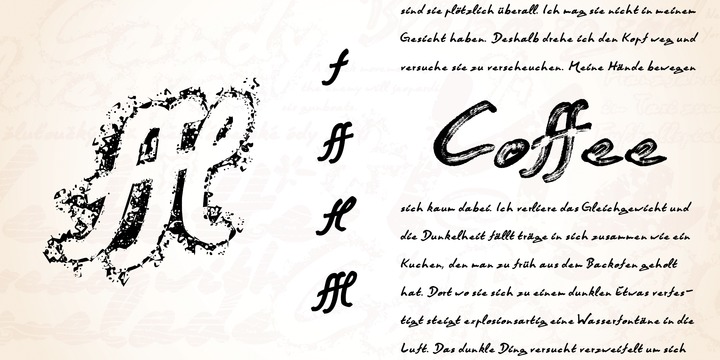 ffl
f
ff
fl
ffl
sind sie plötzlich überall. Ich mag sie nicht in meinem
Gesicht haben. Deshalb drehe ich den Kopf weg und
versuche sie zu verscheuchen. Meine Hände bewegen
Coffee
sich kaum dabei. Ich verliere das Gleichgewicht und
die Dunkelheit fällt träge in sich zusammen wie ein
Kuchen, den man zu früh aus dem Backofen geholt
hat. Dort wo sie sich zu einem dunklen Etwas verfes-
tigt steigt explosionsartig eine Wasserfontäne in die
Luft. Das dunkle Ding versucht verzweifelt um sich